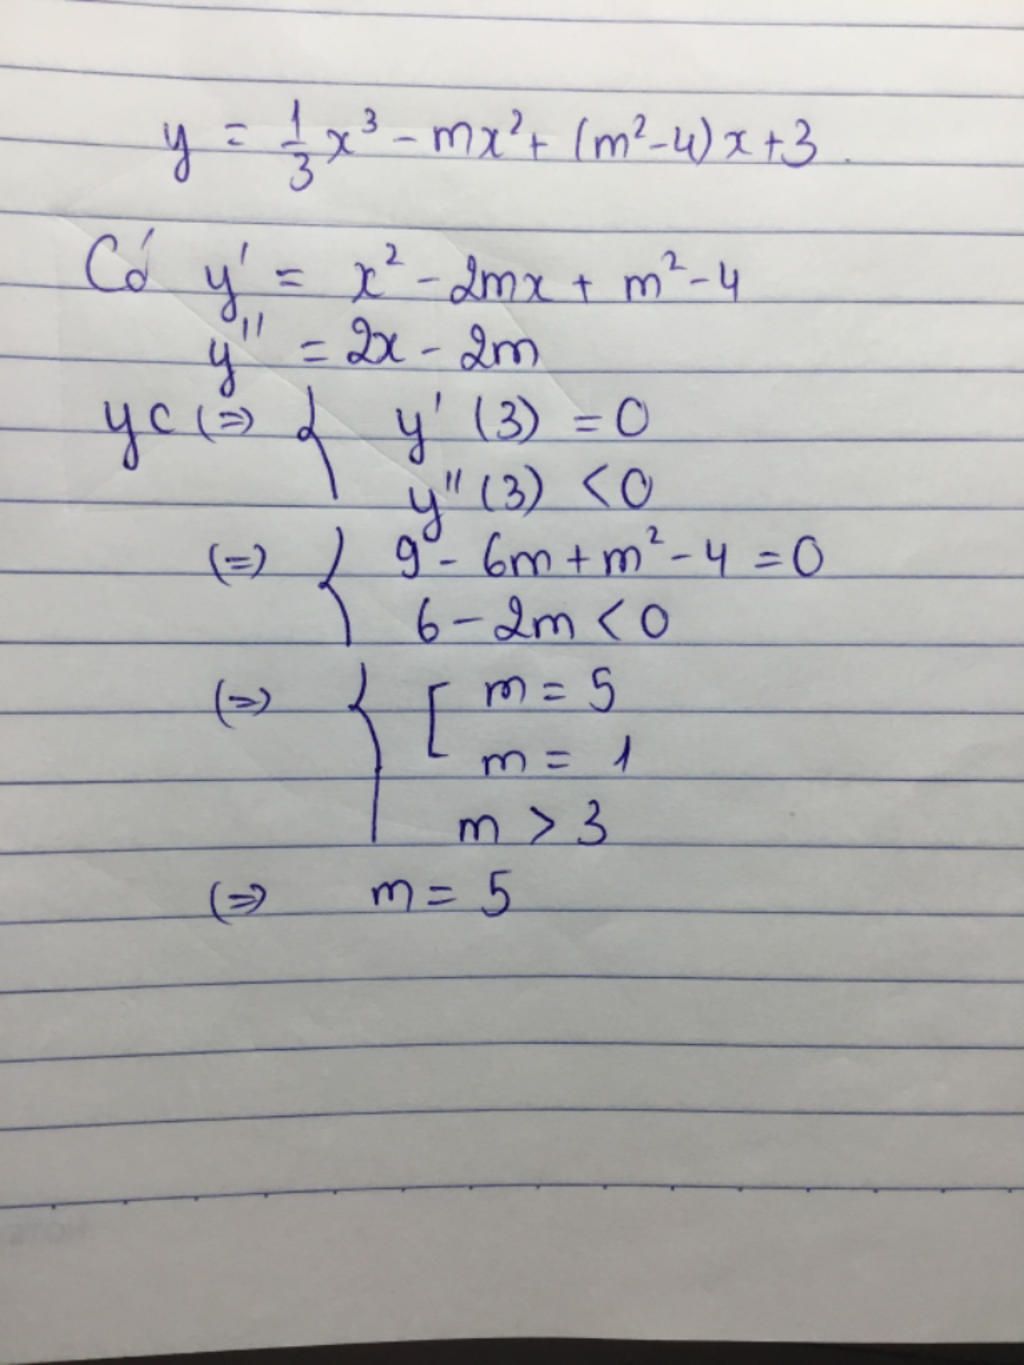 y = 1/3 x³ - mx² + (m²-4)x+3
Có y' = x² - 2mx + m² - 4
y'' = 2x - 2m
yc (=) { y' (3) = 0
y'' (3) < 0
(=) { 9 - 6m + m² - 4 = 0
6 - 2m < 0
(=) { [ m = 5
m = 1
m > 3
(=) m = 5